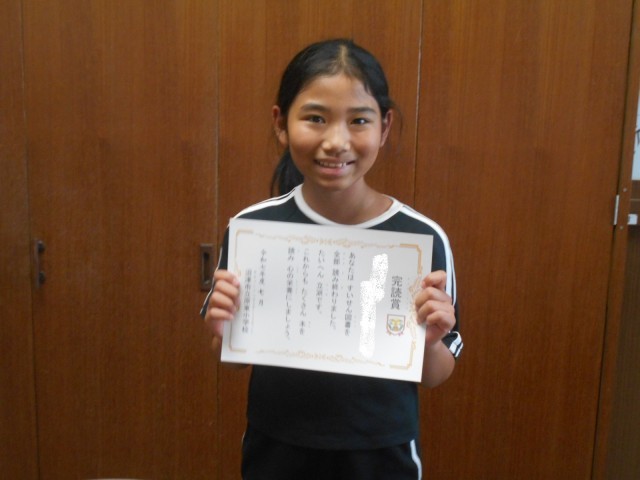 完読賞
あなたは すいせん図書を
全部 読み終わりました。
たいへん 立派です。
これからも たくさん 本を
読み 心の栄養にしましょう。